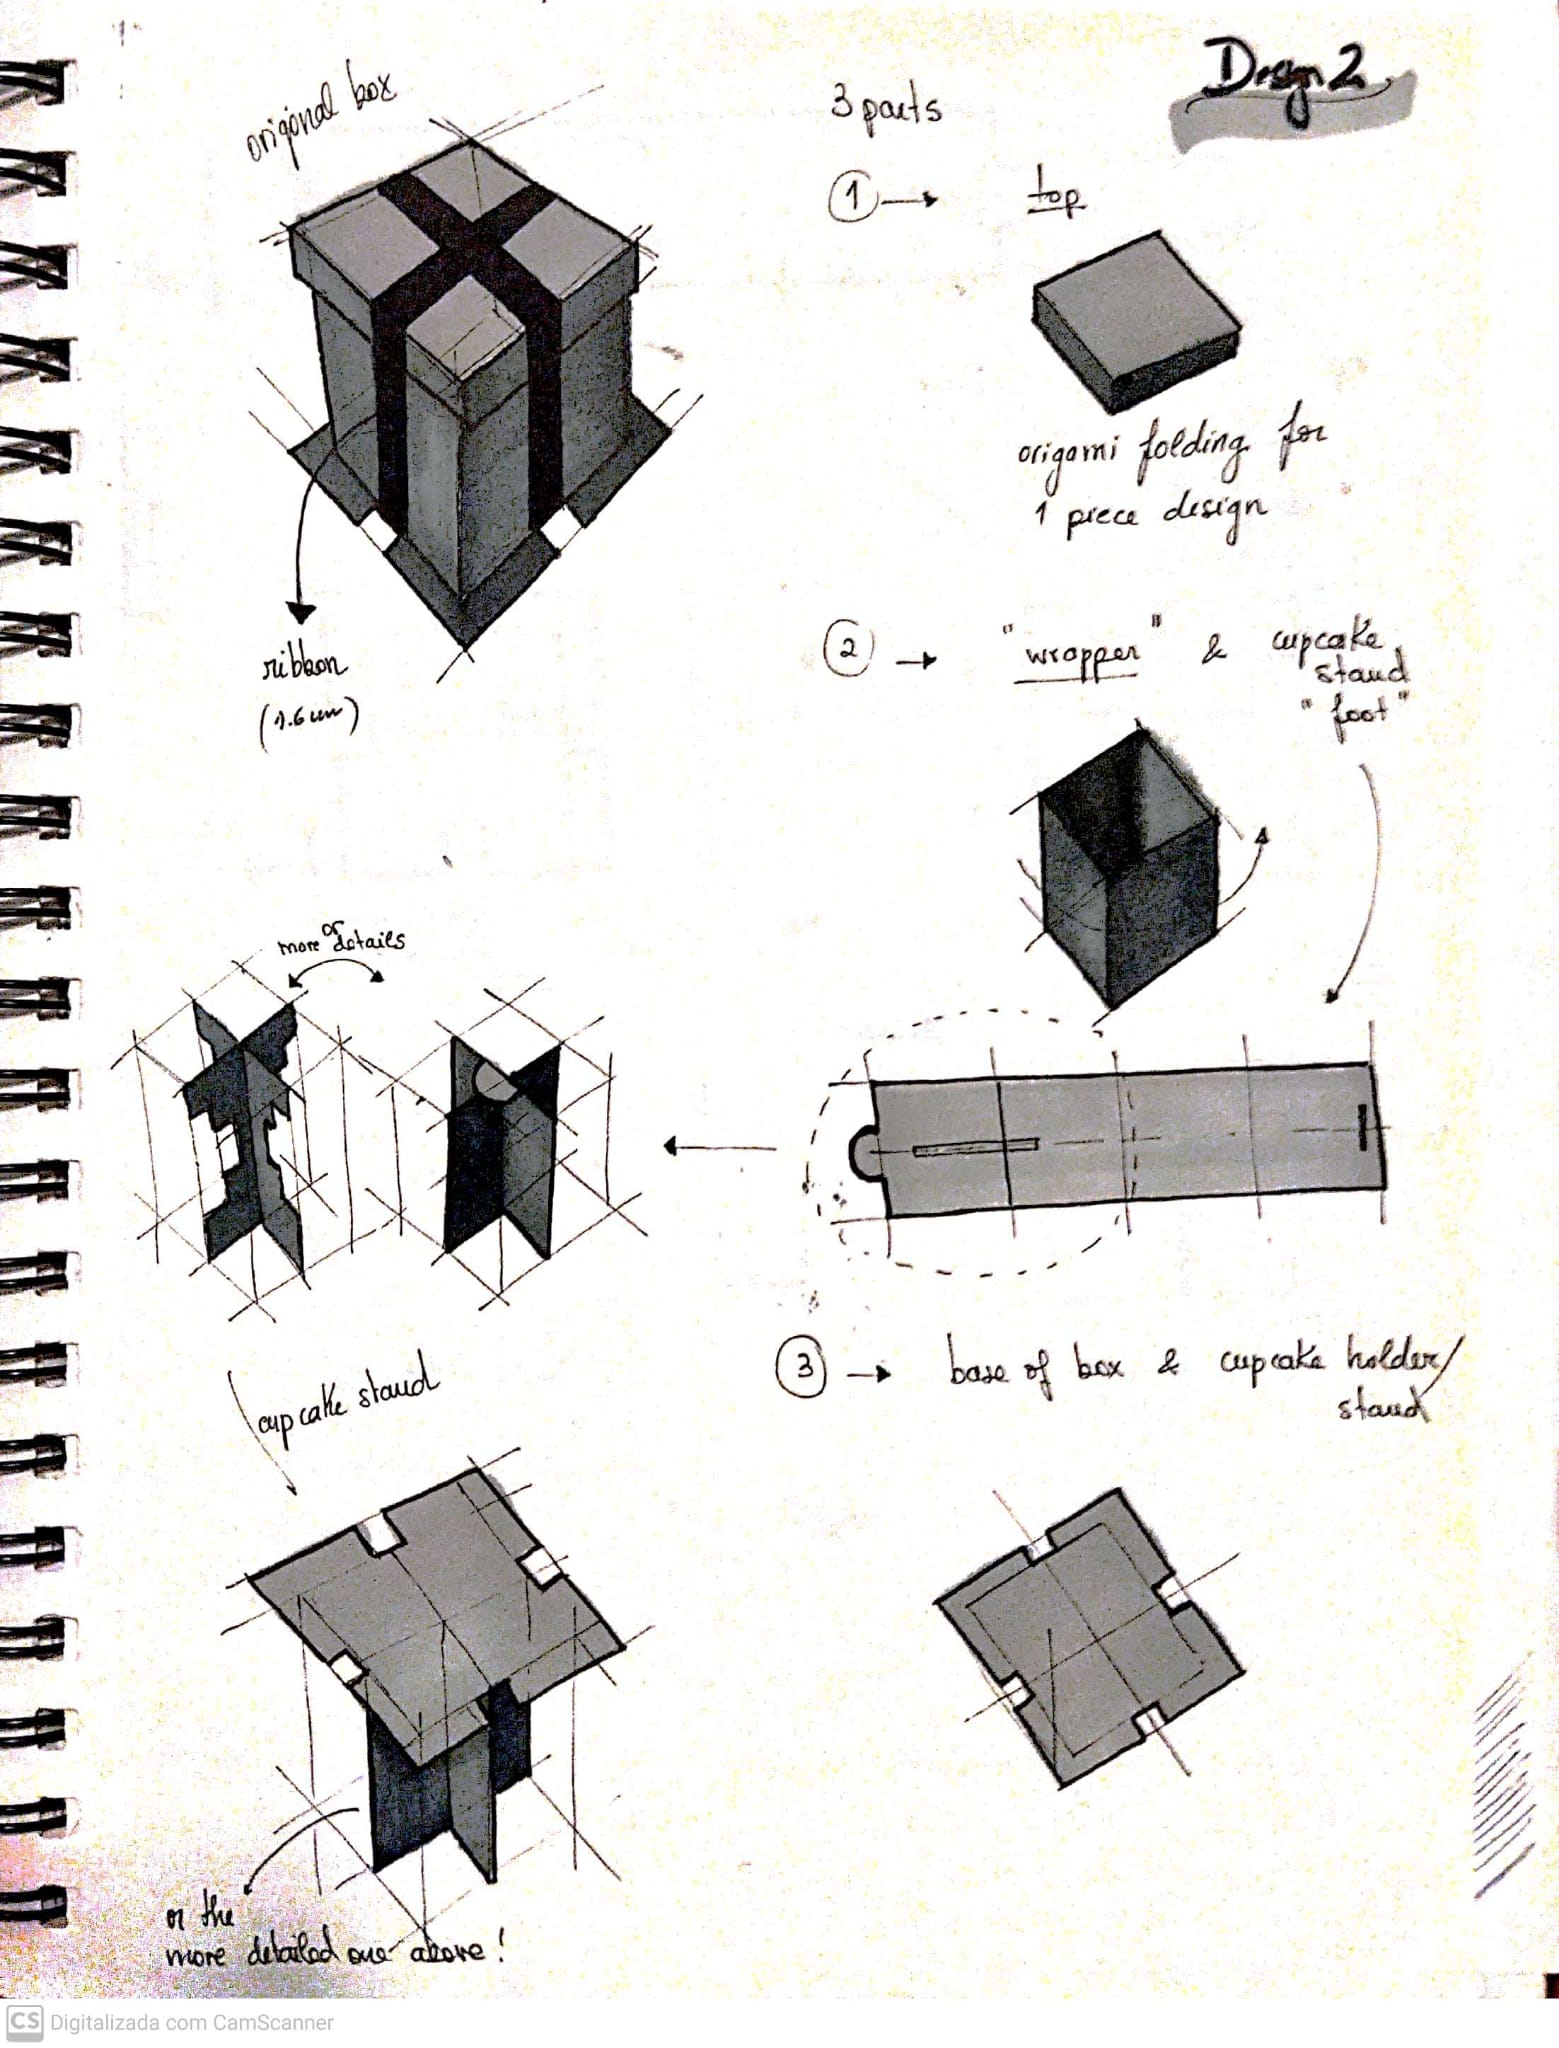 Design 2
origional box
3 parts
1 → top
origami folding for
1 piece design
ribbon
(1.6 cm)
2 → "wrapper" & cupcake
stand
"foot"
or
more details
3 → base of box & cupcake holder/
stand
cupcake stand
or the
more detailed one above!
CS Digitalizada com CamScanner